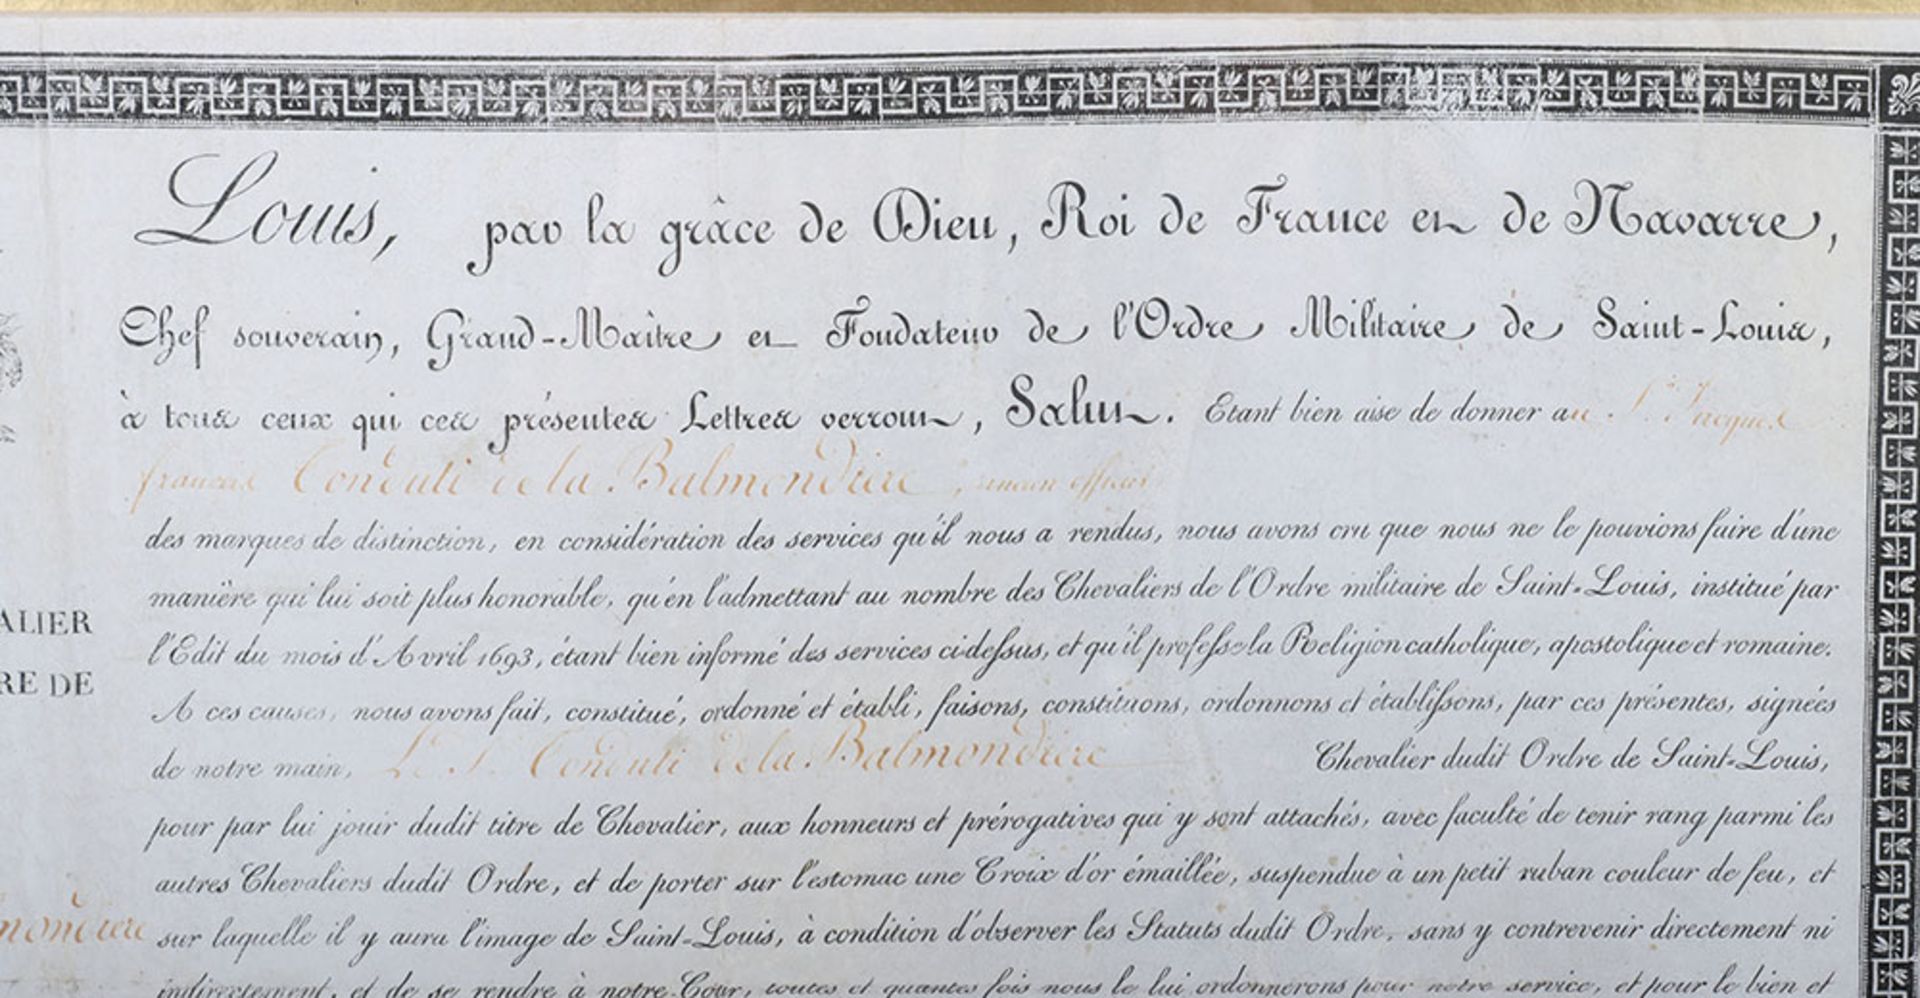 Louis, par la grâce de Dieu, Roi de France et de Navarre,
Chef souverain, Grand-Maître et Fondateur de l'Ordre Militaire de Saint-Louis,
à tous ceux qui ces présentes Lettres verront, Salut. Etant bien aise de donner au S.r Jacques
françois Conduti de la Balmondiere, ancien officier
des marques de distinction, en considération des services qu'il nous a rendus, nous avons cru que nous ne le pouvions faire d'une
manière qui lui soit plus honorable, qu'en l'admettant au nombre des Chevaliers de l'Ordre militaire de Saint-Louis, institué par
l'Edit du mois d'Avril 1693, étant bien informé des services ci-dessus, et qu'il professe la Religion catholique, apostolique et romaine.
A ces causes, nous avons fait, constitué, ordonné et établi, faisons, constituons, ordonnons et établissons, par ces présentes, signées
de notre main, Le S.r Conduti de la Balmondiere Chevalier dudit Ordre de Saint-Louis,
pour par lui jouir dudit titre de Chevalier, aux honneurs et prérogatives qui y sont attachés, avec faculté de tenir rang parmi les
autres Chevaliers dudit Ordre, et de porter sur l'estomac une Croix d'or émaillée, suspendue à un petit ruban couleur de feu, et
sur laquelle il y aura l'image de Saint-Louis, à condition d'observer les Statuts dudit Ordre, sans y contrevenir directement ni
indirectement, et de se rendre à notre Cour, toutes et quantes fois nous le lui ordonnerons pour notre service, et pour le bien et
ALIER
RE DE
mondiere